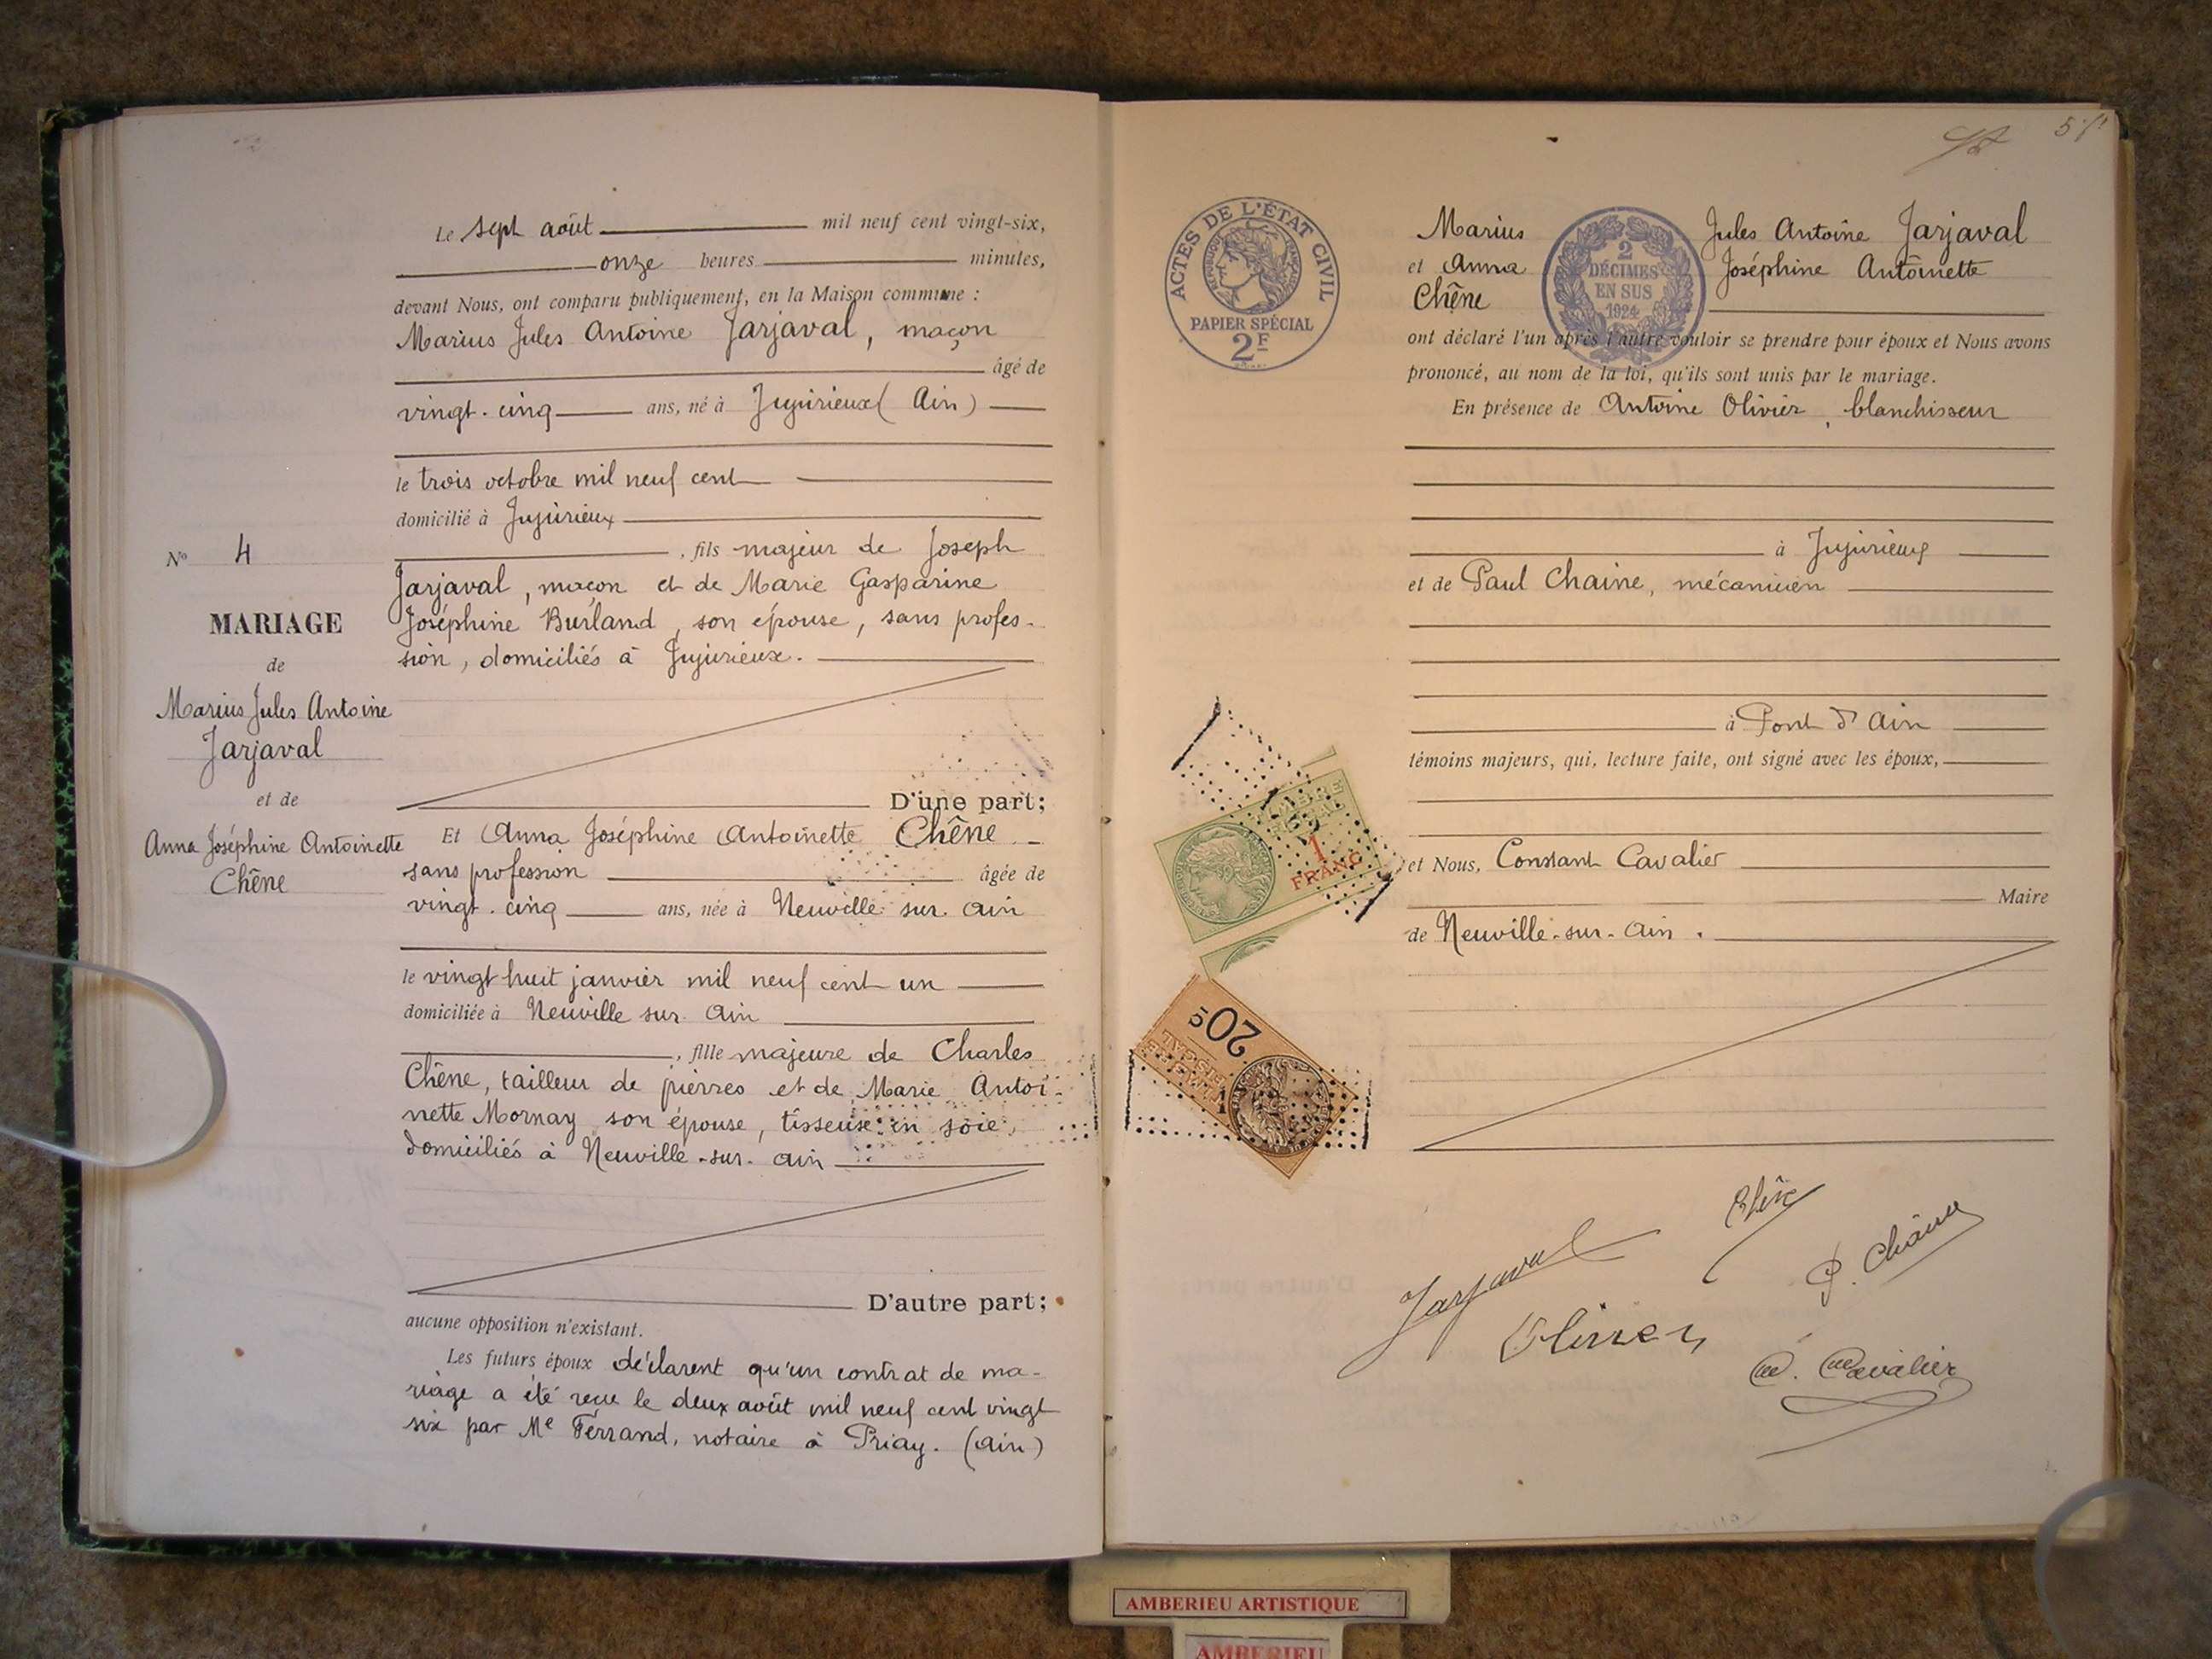 Le sept août mil neuf cent vingt-six,
onze heures minutes,
devant Nous, ont comparu publiquement, en la Maison commune :
Marius Jules Antoine Jarjaval, maçon
âgé de
vingt-cinq ans, né à Jujurieux (Ain)
le trois octobre mil neuf cent
domicilié à Jujurieux
, fils majeur de Joseph
Jarjaval, maçon et de Marie Gasparine
Joséphine Burland, son épouse, sans profes-
sion, domiciliés à Jujurieux.
D'une part;
Et Anna Joséphine Antoinette Chêne
sans profession âgée de
vingt-cinq ans, née à Neuville-sur-Ain
le vingt huit janvier mil neuf cent un
domiciliée à Neuville sur Ain
, fille majeure de Charles
Chêne, tailleur de pierres et de Marie Antoi-
nette Mornay son épouse, tisseuse en soie,
domiciliés à Neuville-sur-Ain
D'autre part;
aucune opposition n'existant.
Les futurs époux déclarent qu'un contrat de ma-
riage a été reçu le deux août mil neuf cent vingt
six par Me Ferrand, notaire à Priay. (Ain)
No 4
MARIAGE
de
Marius Jules Antoine
Jarjaval
et de
Anna Joséphine Antoinette
Chêne
ACTES DE L'ÉTAT CIVIL
PAPIER SPÉCIAL
2F
2
DÉCIMES
EN SUS
1924
Marius Jules Antoine Jarjaval
et Anna Joséphine Antoinette
Chêne
ont déclaré l'un après l'autre vouloir se prendre pour époux et Nous avons
prononcé, au nom de la loi, qu'ils sont unis par le mariage.
En présence de Antoine Olivier, blanchisseur
à Jujurieux
et de Paul Chaine, mécanicien
à Pont d'Ain
témoins majeurs, qui, lecture faite, ont signé avec les époux,
et Nous, Constant Cavalier
Maire
de Neuville-sur-Ain.
1
FRANC
20
Jarjaval
Chêne
P. Chaine
Olivier
C. Cavalier
AMBERIEU ARTISTIQUE
AMBERIEU